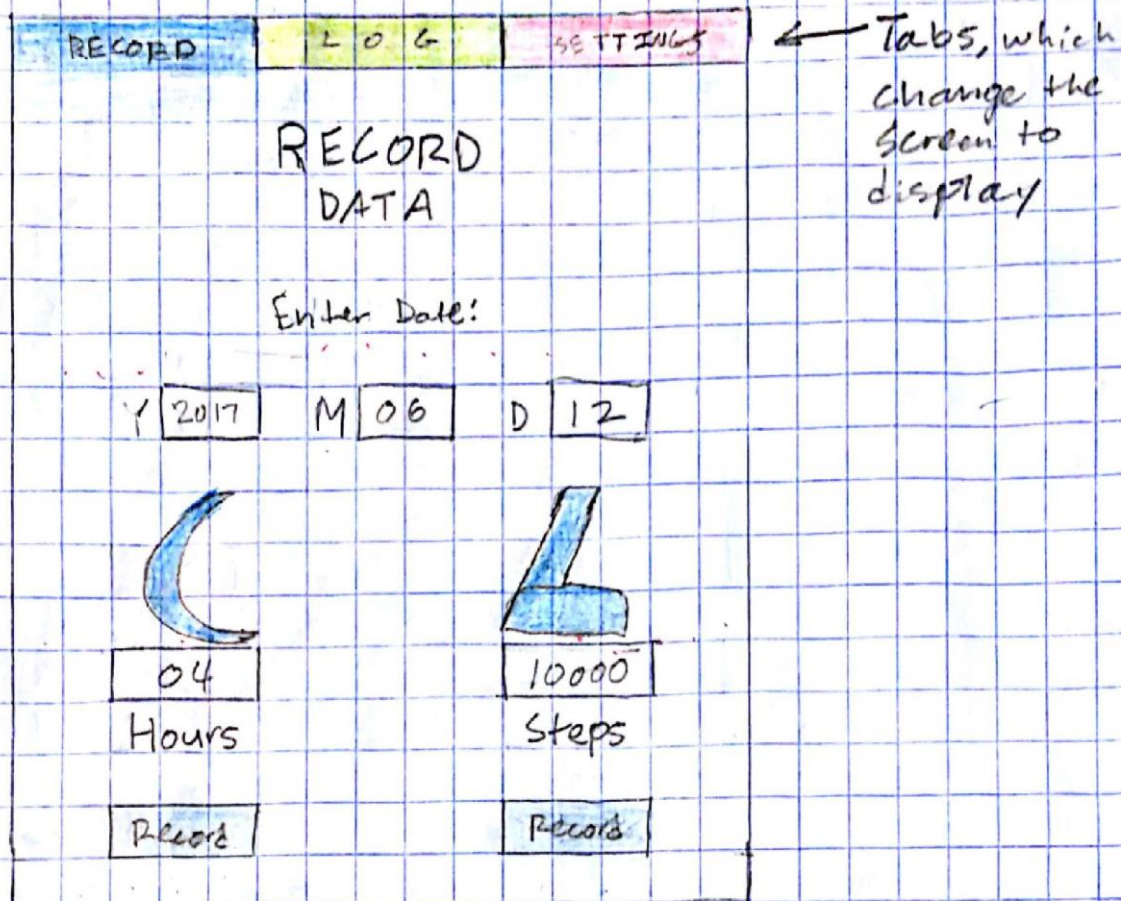 RECORD LOG SETTINGS
Tabs, which
change the
screen to
display
RECORD
DATA
Enter Date:
Y 2017 M 06 D 12
04 10000
Hours Steps
Record Record